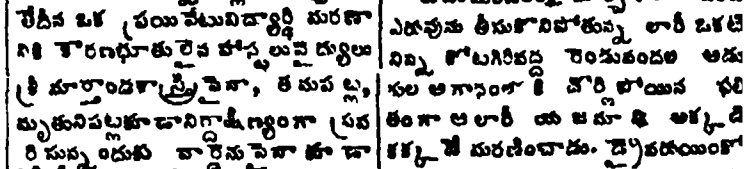 లేదీన ఒక ప్రయివేటువిద్యార్థి మరణా
నికి కారణభూతులైన హాస్టలువైద్యులు
శ్రీ మార్తాండశాస్త్రిపైనా, తమపట్ల,
మృతునిపట్లకూడా నిర్దాక్షిణ్యంగా ప్రవ
ర్తిసున్నందుకు వార్డెనుపైనా కూడా
ఎరువును తీసుకొనిపోతున్న లారీ ఒకటి
నిన్న కోటగిరివద్ద రెండువందల అడు
గుల అగాధంలోకి దొర్లిపోయిన ఫలి
తంగా ఆ లారీ యజమాని అక్కడి
కక్కడే మరణించాడు. డ్రైవరుయింకో